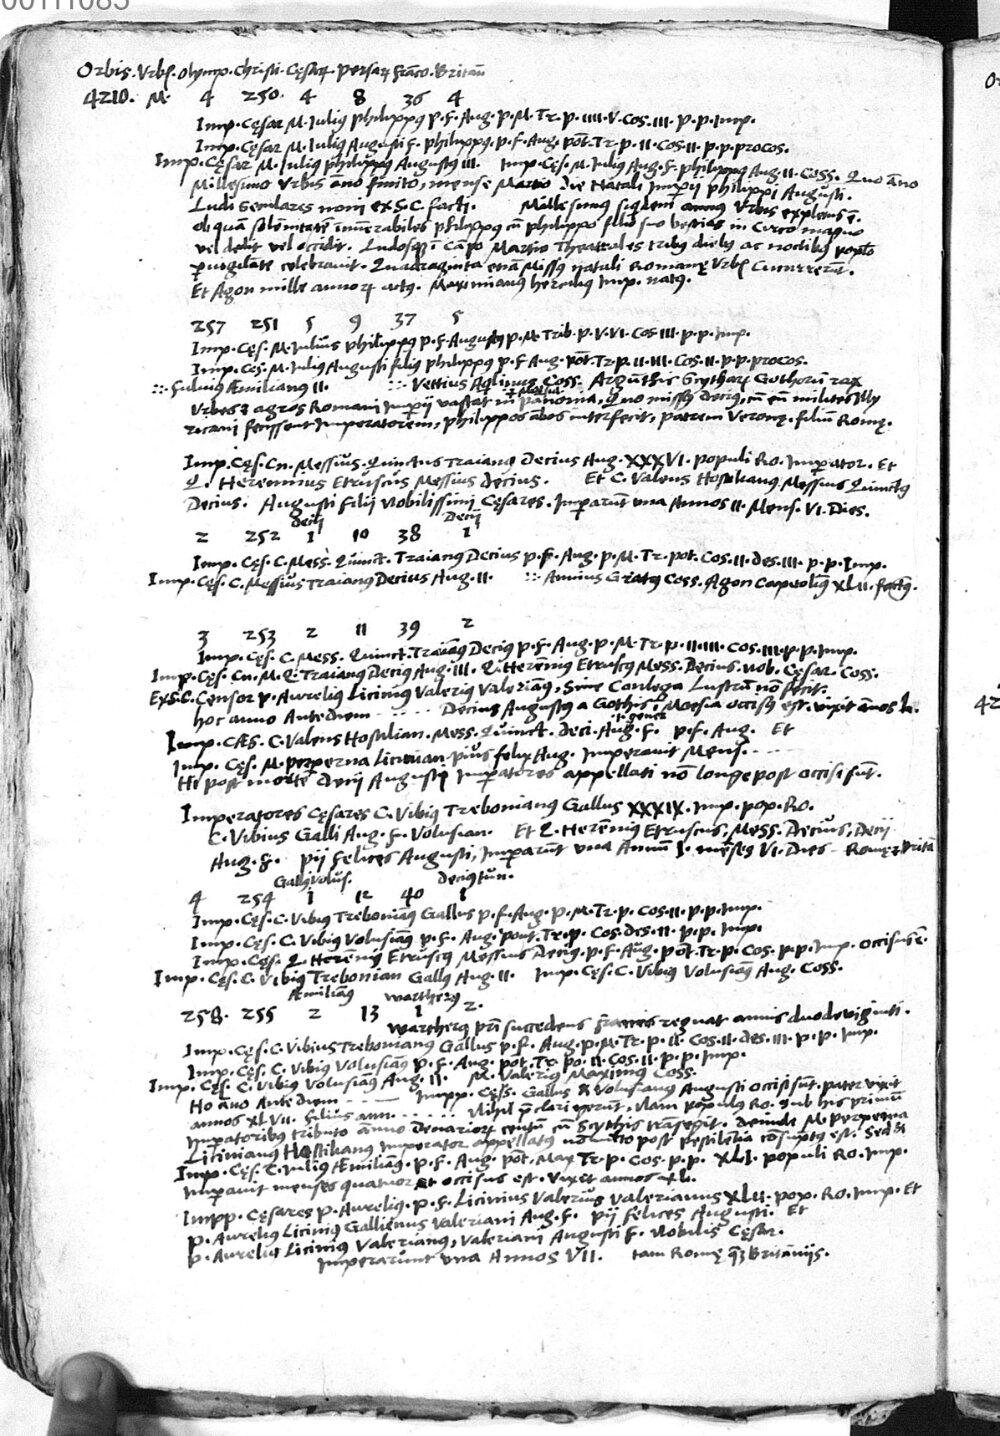 00111083
Orbis. Vrbꝭ. olymp. Christi. Cęsarꝝ. Persarꝝ franco. Britañ
4210. M. 4 250. 4 8 36 4
Imp. Cęsar M. Iuliꝰ philippꝰ p. f. Aug. p. M. Tr. p. IIII. V. Cos. III. p. p. Imp.
Imp. Cęsar M. Iuliꝰ Augusti f. philippꝰ. p. f. Aug. pōt. Tr. p. II. Cos. II. p. p. procos.
Imp. Cęsar M. Iuliꝰ philippꝰ Augustꝰ III. Imp. Cęs. M. Iuliꝰ Aug. f. philippꝰ Aug. II. Coss. Quo āno
Millesimo Vrbis āno finito, mense Martio die Natali Imꝑij philippi Augusti.
Ludi Seculares noni ex S. C. facti. Millesimus siquidem annus Vrbis expletus ē.
ob quam solēnitatē inūerabiles philippꝰ cū philippo filio suo bestias in Circo magno
vel dedit vel occidit. Ludosqꝫ ī Cāpo Martio Theatrales tribꝰ diebꝰ ac noctibꝰ poplo
ꝑuigilāte celebrauit. Quadraginta etiā Missꝰ natali Romanę Vrbꝭ Cucurrerūt.
Et Agon mille annorꝝ actꝰ. Maximianꝰ herculiꝰ Imp. natꝰ.
257 251 5 9 37 5
Imp. Cęs. M. Iulius philippꝰ p. f. Augustꝰ p. M. Trib. p. V. VI. Cos. III. p. p. Imp.
Imp. Cęs. M. Iuliꝰ Augusti filiꝰ philippꝰ p. f. Aug. pōt. Tr. p. II. III. Cos. II. p. p. procos.
Fuluiꝰ Æmilianꝰ II. Vettius Aqlinus Coss. Argūthis Scytharꝝ Gothorū rex
Vrbes & agros Romani Imꝑij vastat in pānonia, Quo missꝰ Deciꝰ, cū eū milites Illy
ricani fecissent Imperatorem, philippos ābos interfecit, patrem Veronę. filiū Romę.
Imp. Cęs. Cn. Messius. Quinctus Traianꝰ Decius Aug. XXXVI. populi Ro. Imꝑator. Et
Q. Herennius Etruscus Messius Decius. Et C. Valens Hostilianꝰ Messius Quinctꝰ
Decius. Augusti filij Nobilissimi Cęsares. Imꝑarūt vna Annos II. Mens. VI. Dies.
Decij Decij
2 252 1 10 38 1
Imp. Cęs. C. Mess. Quinct. Traianꝰ Decius p. f. Aug. p. M. Tr. pot. Cos. II. des. III. p. p. Imp.
Imp. Cęs. C. Messius Traianus Decius Aug. II. Annius Gratꝰ Coss. Agon Capitolinꝰ XLII. factꝰ.
3 253 2 11 39 2
Imp. Cęs. C. Mess. Quinct. Traianꝰ Deciꝰ p. f. Aug. p. M. Tr. p. II. III. Cos. III. p. p. Imp.
Imp. Cęs. Cn. M. Q. Traianꝰ Deciꝰ Aug. III. Q. Herenniꝰ Etruscꝰ Mess. Decius. Nob. Cęsar. Coss.
Ex S. C. Censor P. Aureliꝰ Liciniꝰ Valeriꝰ Valerianꝰ, Sine Conlega Lustrū nō fecit.
hoc anno Ante diem Decius Augustꝰ a Gothis ī Moesia occisꝰ est. vixit ānos L.
Imp. CÆS. C. Valens Hostilian. Mess. Quinct. Deci. Aug. F. p. f. Aug. Et
Imp. Cęs. M. perperna Licinian. pius felix Aug. Imperauit Mens.
Hi post mortē Decij Augusti Imꝑatores appellati nō longe post occisi sūt.
Imperatores Cęsares C. Vibiꝰ Trebonianꝰ Gallus XXXIX. Imp. pop. Ro.
C. Vibius Galli Aug. F. Volusian. Et Q. Herēniꝰ Etruscus, Mess. Decius, Decij
Aug. F. Pij felices Augusti, Imꝑarūt vna Annū I. mēses VI. Dies Romę & Britā
Gallꝰ volus. Deciꝰ tun.
4 254 1 12 40 1
Imp. Cęs. C. Vibiꝰ Trebonianꝰ Gallus p. f. Aug. p. M. Tr. p. Cos. II. p. p. Imp.
Imp. Cęs. C. Vibiꝰ Volusianꝰ p. f. Aug. pont. Tr. p. Cos. des. II. p. p. Imp.
Imp. Cęs. Q. Herēniꝰ Etruscꝰ Messius Deciꝰ. p. f. Aug. pōt. Tr. p. Cos. p. p. Imp. occisus ē.
Imp. Cęs. C. Vibiꝰ Trebonian Gallꝰ Aug. II. Imp. Cęs. C. Vibiꝰ Volusianꝰ Aug. Coss.
Æmilianꝰ Wartherꝰ
258. 255 2 13 1 2.
Wartherꝰ pri succedens francis regnat annis duodeviginti.
Imp. Cęs. C. Vibius Trebonianꝰ Gallus p. f. Aug. p. M. Tr. p. II. Cos. II. des. III. p. p. Imp.
Imp. Cęs. C. Vibiꝰ Volusianꝰ p. f. Aug. pōt. Tr. po. II. Cos. II. p. p. Imp.
Imp. Cęs. C. Vibiꝰ Volusianꝰ Aug. II. M. Valeriꝰ Maximꝰ Coss.
Ho āno Ante diem Impp. Cęss. Gallus & Volusianꝰ Augusti occisi sūt. pater vixit
annos XLVII. filius ann. Nihil p̄clari gerūt, Nam populꝰ Ro. sub his primū
Imꝑatoribꝰ tributo āno Denariorꝝ cum Scythis trāsegit. Deinde M. Perperna
Licinianus Hostilianꝰ Imperator appellatꝰ nō multo post pestilētia cōsumptꝰ est. Sed &
Imp. Cęs. C. Iuliꝰ Æmilianꝰ. p. f. Aug. pōt. Max Tr. p. Cos. p. p. XLI. populi Ro. Imp.
Imꝑauit menses quatuor et occisus est. Vixit annos XL.
Impp. Cęsares P. Aureliꝰ. P. F. Licinius Valerius Valerianus XLII. pop. Ro. Imp. Et
P. Aureliꝰ Liciniꝰ Gallienus Valeriani Aug. F. pij felices Augusti. Et
P. Aureliꝰ Liciniꝰ Valerianꝰ, Valeriani Augusti F. Nobilis Cęsar.
Imperarunt vna Annos VII. tam Romę q̄ꝫ Britānijs.